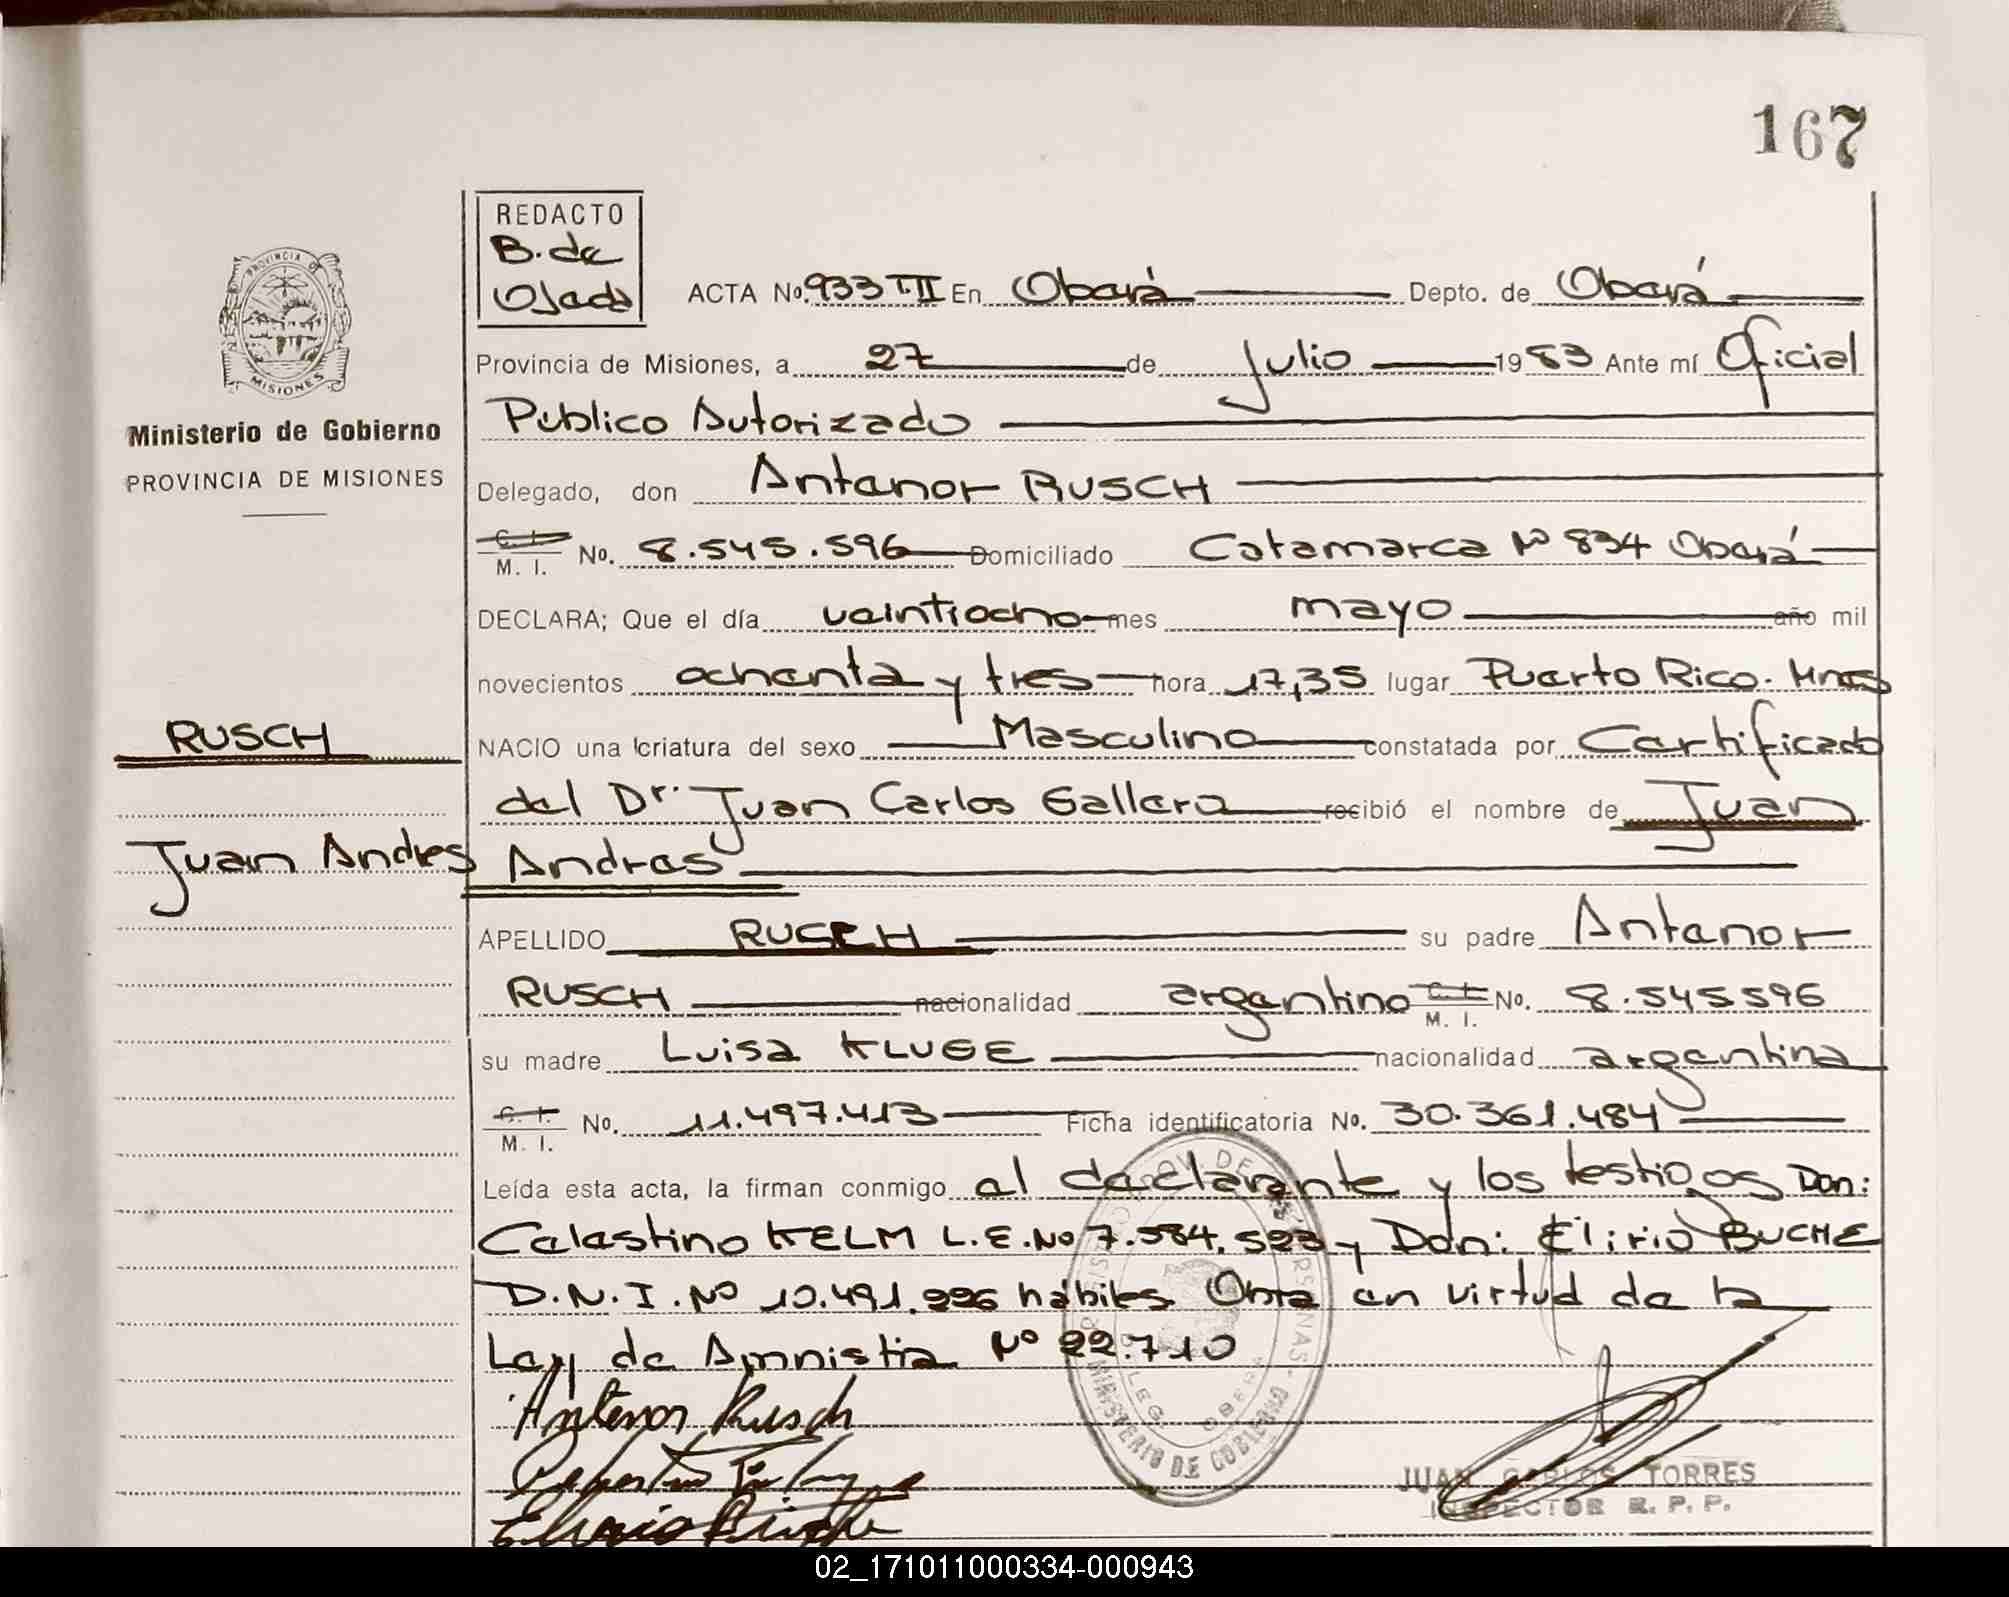 167
REDACTO
B. de
Ojeda
ACTA No. 933 T.II En Oberá Depto. de Oberá
Provincia de Misiones, a 27 de Julio 1983 Ante mí Oficial
Ministerio de Gobierno
PROVINCIA DE MISIONES
Público Autorizado
Delegado, don Antenor RUSCH
C. I.
M. I. No. 8.545.596 Domiciliado Catamarca Nº 834 Oberá
DECLARA; Que el día veintiocho mes mayo año mil
novecientos ochenta y tres hora 17,35 lugar Puerto Rico. Mnes
RUSCH
NACIO una criatura del sexo Masculino constatada por Certificado
del Dr. Juan Carlos Gallero recibió el nombre de Juan
Juan Andres
Andres
APELLIDO RUSCH su padre Antenor
RUSCH nacionalidad argentino C. I. M. I. No. 8.545596
su madre Luisa KLUGE nacionalidad argentina
C. I.
M. I. No. 11.497.413 Ficha identificatoria No. 30.361.484
Leída esta acta, la firman conmigo el declarante y los testigos Don:
Celestino KELM L.E.No 7.584.523 y Don: Elirio BUCHE
D.N.I. Nº 10.491.996 hábiles Obra en virtud de la
Ley de Amnistia Nº 22.710
Antenor Rusch
MINISTERIO DE GOBIERNO
DELEG. OBERA
JUAN CARLOS TORRES
INSPECTOR R. P. P.
02_171011000334-000943